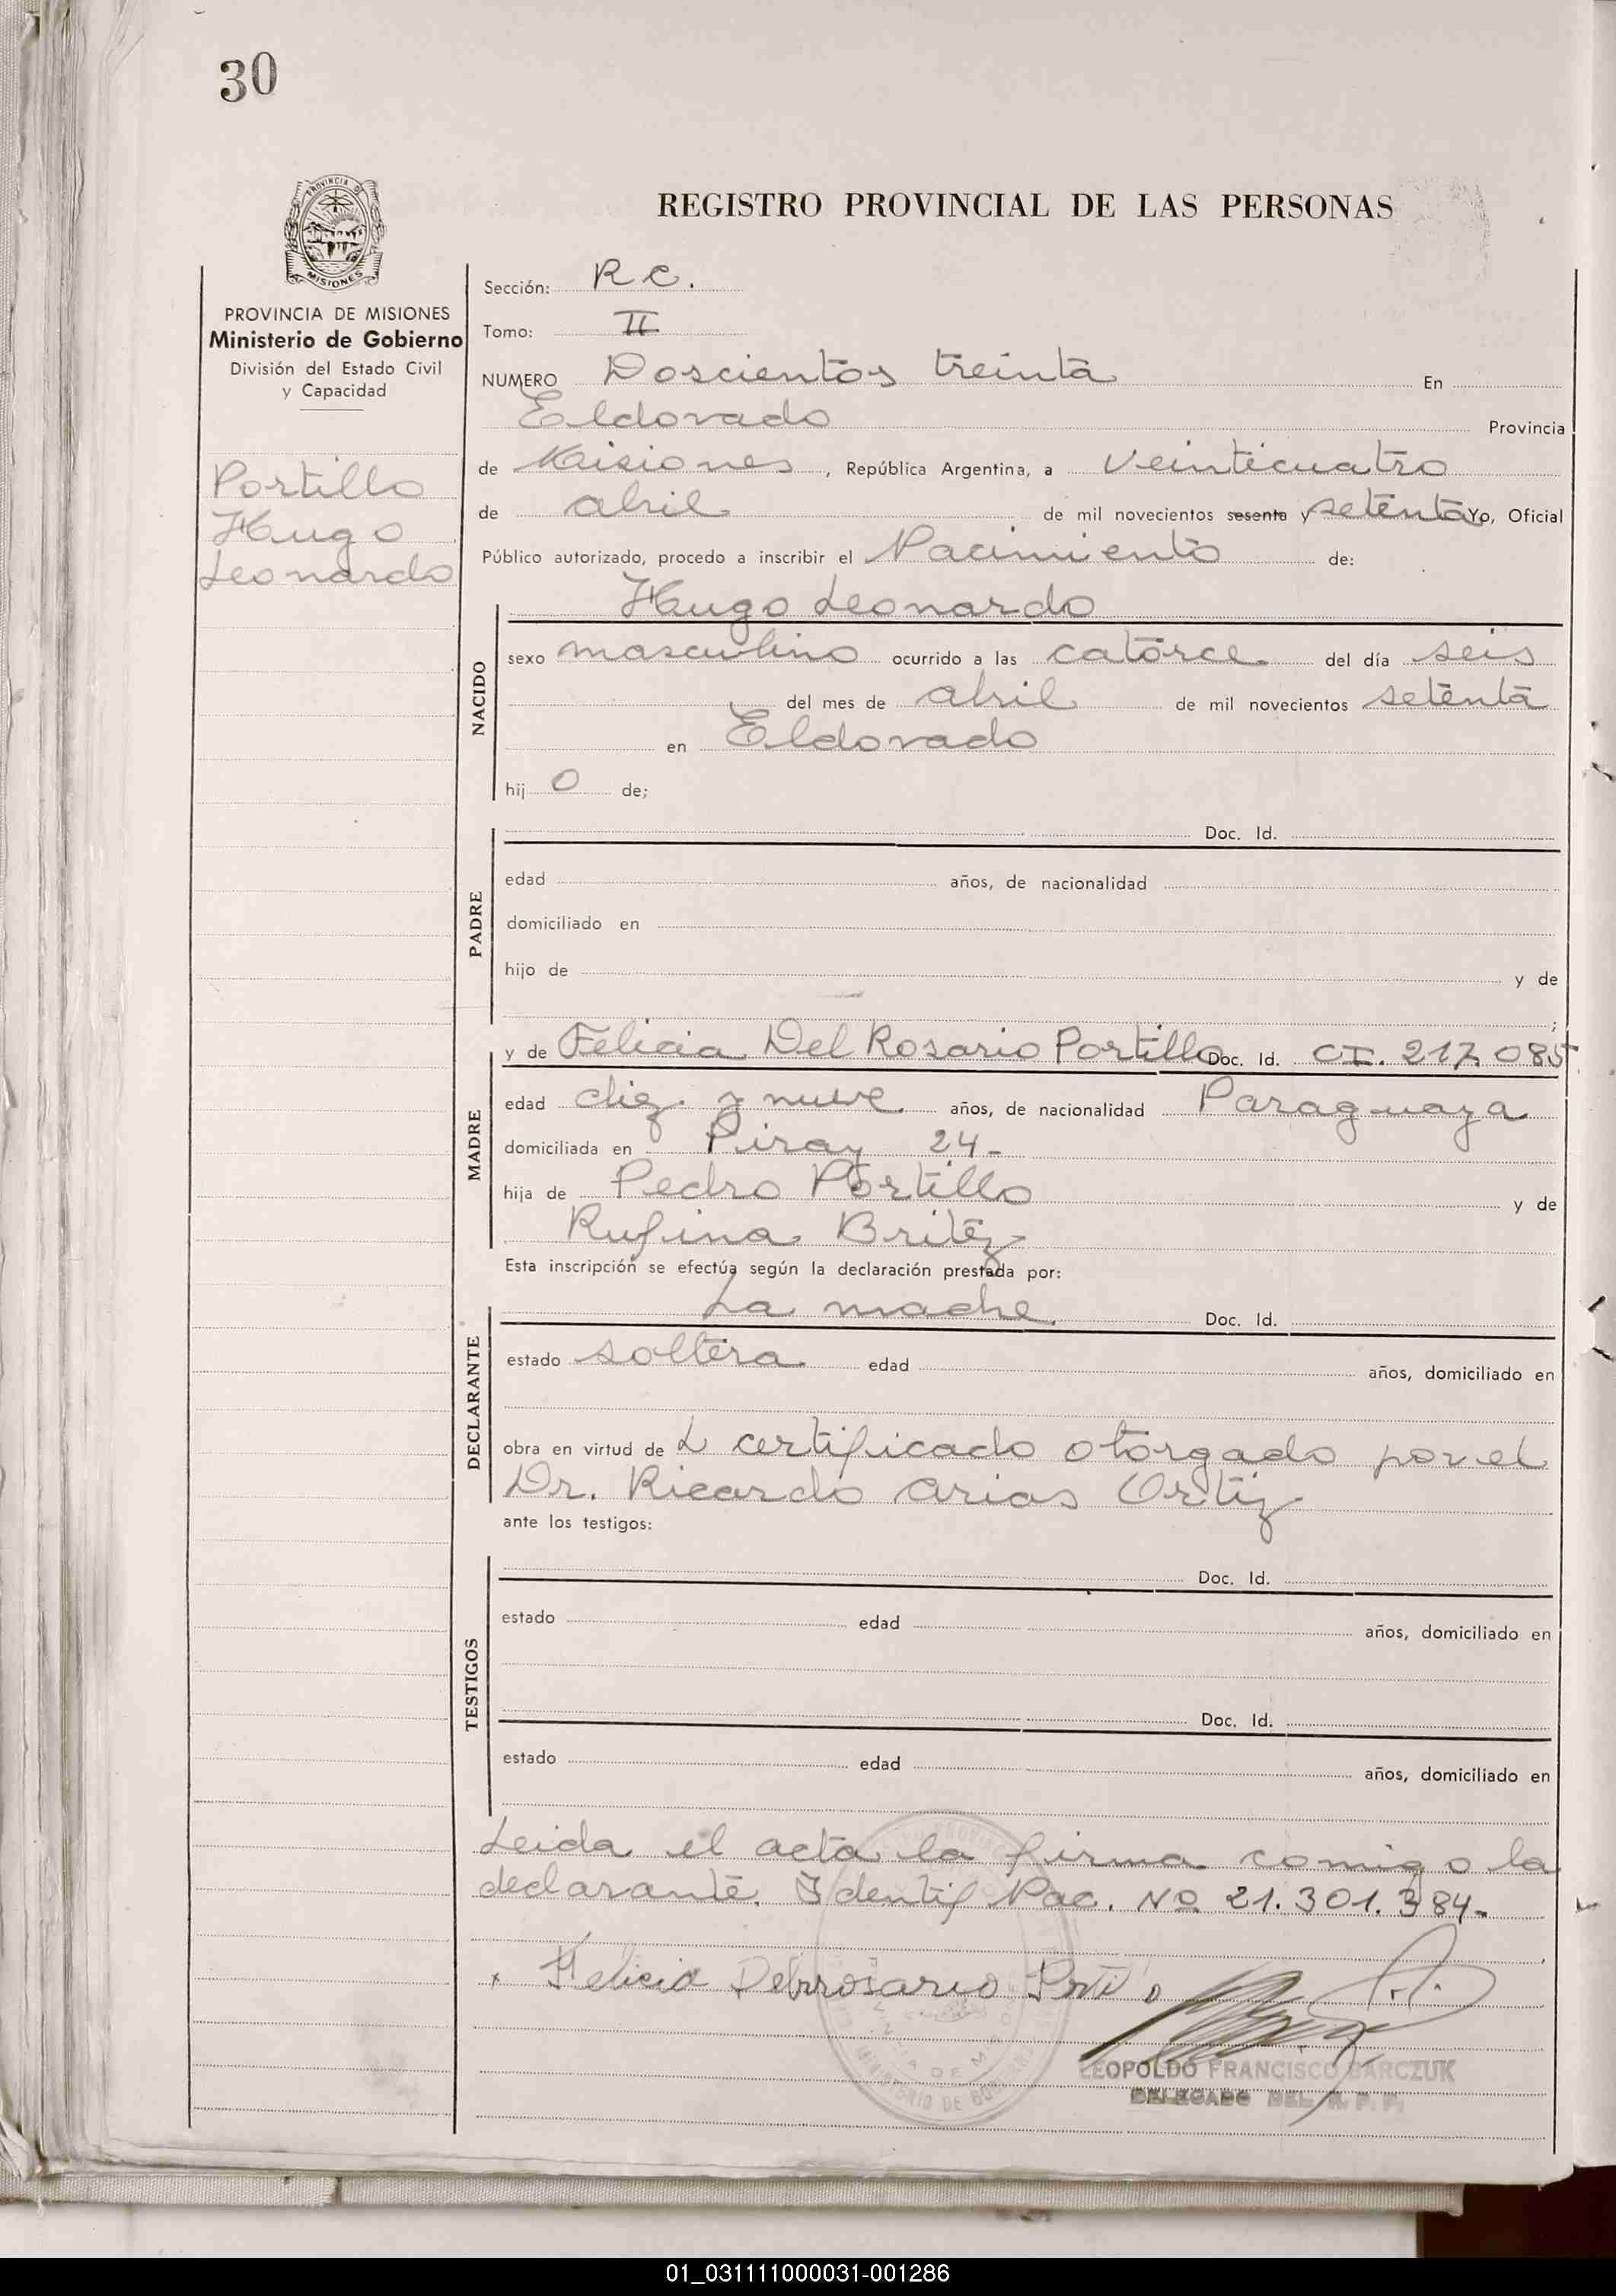 30
PROVINCIA DE
MISIONES
REGISTRO PROVINCIAL DE LAS PERSONAS
PROVINCIA DE MISIONES
Ministerio de Gobierno
División del Estado Civil
y Capacidad
Portillo
Hugo
Leonardo
Sección: R C.
Tomo: II
NUMERO Doscientos treinta En
Eldorado Provincia
de Misiones, República Argentina, a veinticuatro
de abril de mil novecientos sesenta y setenta Yo, Oficial
Público autorizado, procedo a inscribir el Nacimiento de:
Hugo Leonardo
NACIDO
sexo masculino ocurrido a las catorce del día seis
del mes de abril de mil novecientos setenta
en Eldorado
hij o de;
PADRE
Doc. Id.
edad años, de nacionalidad
domiciliado en
hijo de y de
;
MADRE
y de Felicia Del Rosario Portillo Doc. Id. CI. 217.085
edad diez y nueve años, de nacionalidad Paraguaya
domiciliada en Piray 24-
hija de Pedro Portillo y de
Rufina Britez
Esta inscripción se efectúa según la declaración prestada por:
DECLARANTE
La madre Doc. Id.
estado soltera edad años, domiciliado en
obra en virtud de L certificado otorgado por el
Dr. Ricardo Arias Ortiz
ante los testigos:
TESTIGOS
Doc. Id.
estado edad años, domiciliado en
Doc. Id.
estado edad años, domiciliado en
Leida el acta la firma comigo la
declarante. Identif Nac. Nº 21.301.384-
x Felicia Delrrosario
LEOPOLDO FRANCISCO BARCZUK
DELEGADO DEL R. P. P.
01_031111000031-001286